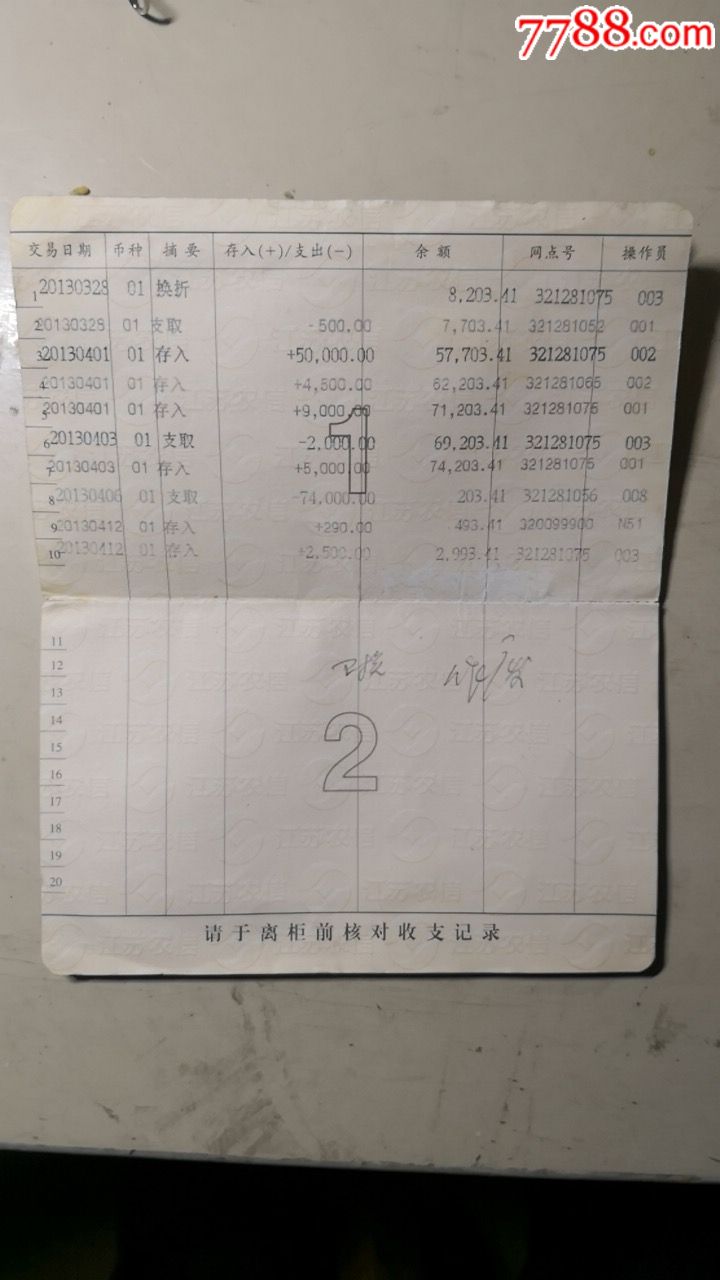 7788.com
交易日期 币种 摘要 存入(+)/支出(-) 余额 网点号 操作员
1 20130328 01 换折 8,203.41 321281075 003
2 20130328 01 支取 -500.00 7,703.41 321281052 001
3 20130401 01 存入 +50,000.00 57,703.41 321281075 002
4 20130401 01 存入 +4,500.00 62,203.41 321281065 002
5 20130401 01 存入 +9,000.00 71,203.41 321281075 001
6 20130403 01 支取 -2,000.00 69,203.41 321281075 003
7 20130403 01 存入 +5,000.00 74,203.41 321281075 001
8 20130406 01 支取 -74,000.00 203.41 321281056 008
9 20130412 01 存入 +290.00 493.41 320099900 N51
10 20130412 01 存入 +2,500.00 2,993.41 321281075 003
1
11
12
13
14
15
16
17
18
19
20
作废
2
江苏农信
请于离柜前核对收支记录